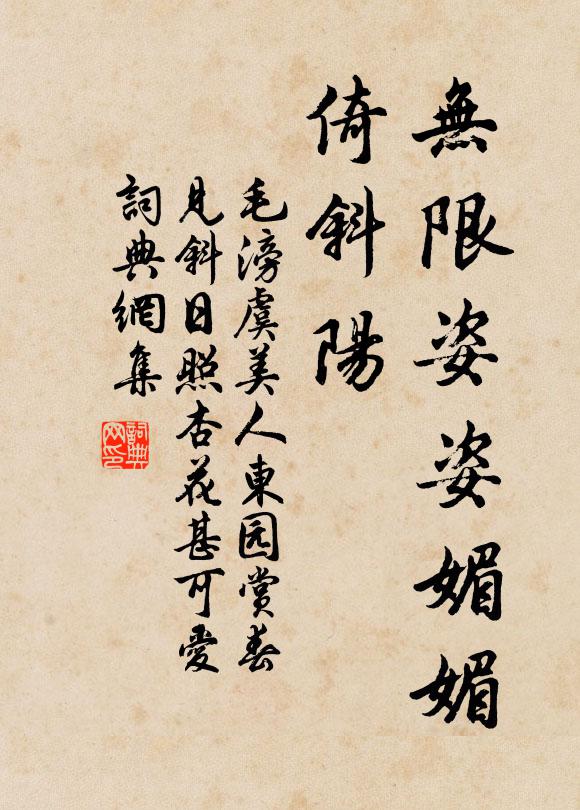 無限姿姿媚媚
倚斜陽
毛滂虞美人東园赏春
见斜日照杏花甚可愛
詞典網集
詞典
网印